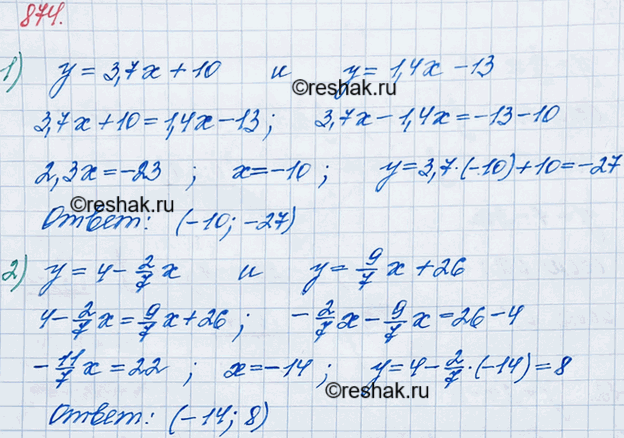 874.
1) y = 3,7x + 10 и y = 1,4x - 13
©reshak.ru
3,7x + 10 = 1,4x - 13; 3,7x - 1,4x = -13 - 10
2,3x = -23; x = -10; y = 3,7·(-10) + 10 = -27
©reshak.ru
Ответ: (-10; -27)
2) y = 4 - 2/7 x и y = 9/7 x + 26
4 - 2/7 x = 9/7 x + 26; -2/7 x - 9/7 x = 26 - 4
-11/7 x = 22; x = -14; y = 4 - 2/7·(-14) = 8
©reshak.ru
Ответ: (-14; 8)